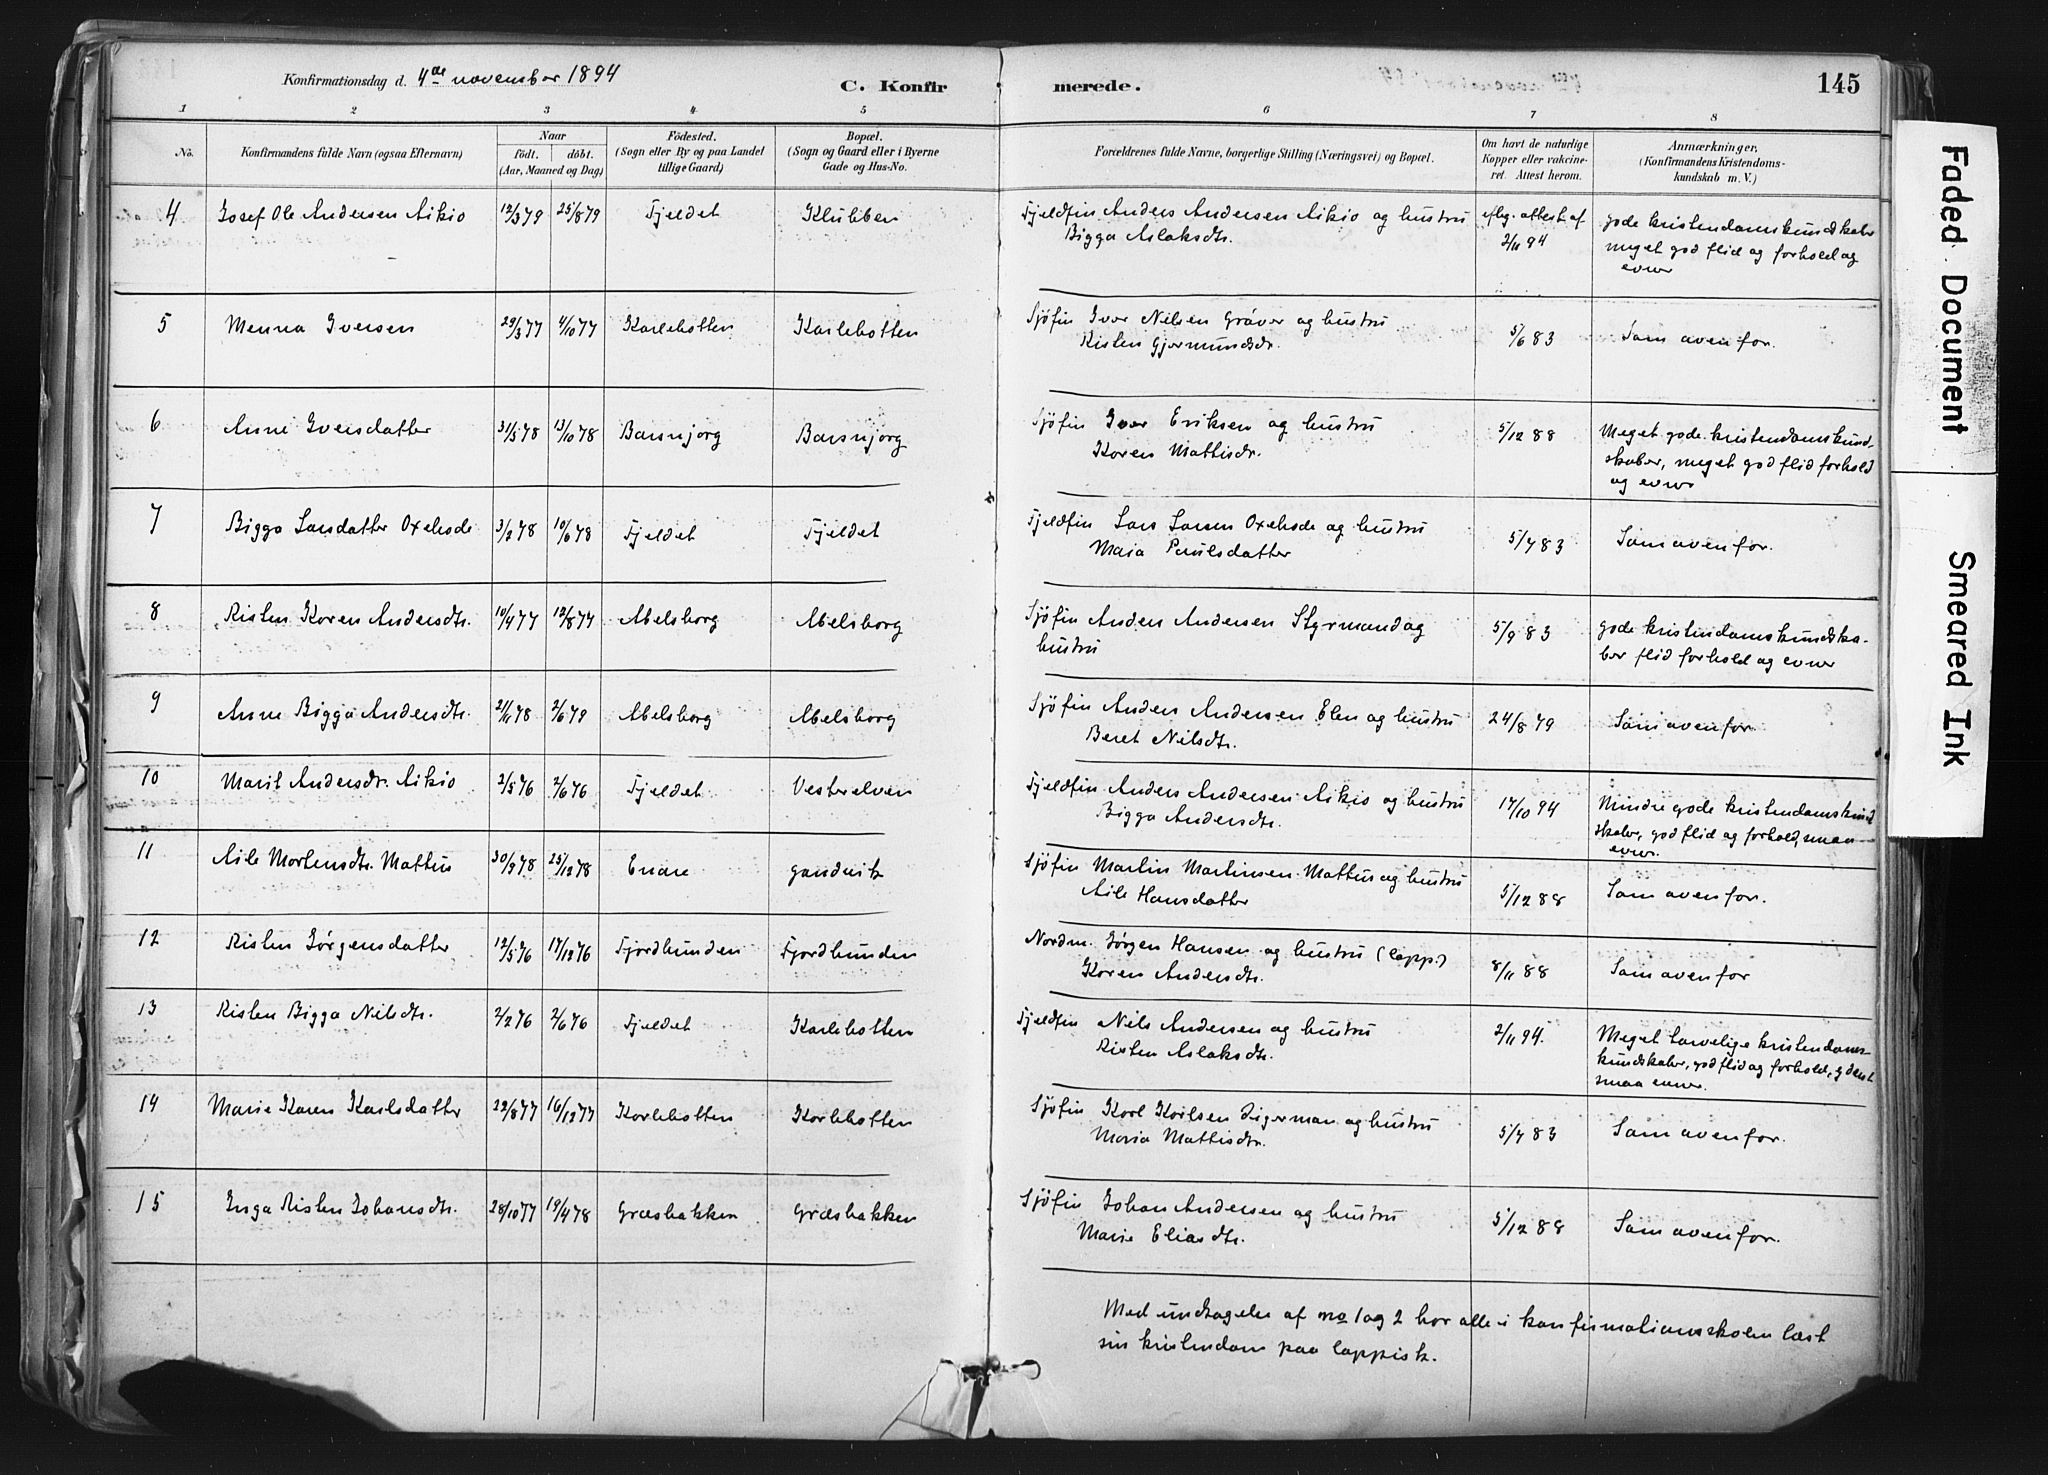 Konfirmationsdag d. 4de november 1894
C. Konfirmerede.
145
1 2 3 4 5 6 7 8
No.
Konfirmandens fulde Navn (ogsaa Efternavn)
Naar
födt. döbt.
(Aar, Maaned og Dag)
Födested.
(Sogn eller By og paa Landet
tillige Gaard)
Bopæl.
(Sogn og Gaard eller i Byerne
Gade og Hus-No.
Forældrenes fulde Navne, borgerlige Stilling (Næringsvei) og Bopæl.
Om havt de naturlige
Kopper eller vakcine-
ret. Attest herom.
Anmærkninger.
(Konfirmandens Kristendoms-
kundskab m. V.)
4 Josef Ole Andersen Aikio 12/3 79 25/8 79 Fjeldet Klubben Fjeldfin Anders Andersen Aikio og hustru eflg. attest af gode kristendomskundskaber
Bigga Aslaksdtr. 2/11 94 meget god flid og forhold og
evner
5 Menna Iversen 29/3 77 4/10 77 Karlebotten Karlebotten Sjøfin Iver Nilsen Gråver og hustru 5/6 83 Som ovenfor.
Risten Gjermundsdr.
6 Anne Iversdatter 31/3 78 13/10 78 Barsnjorg Barsnjorg Sjøfin Iver Eriksen og hustru 5/12 88 Meget gode kristendomskund-
Karen Mattisdr. skaber, meget god flid forhold
og evner
7 Bigga Larsdatter Oxehode 3/2 78 10/6 78 Fjeldet Fjeldet Fjeldfin Lars Larsen Oxehode og hustru 5/4 83 Som ovenfor.
Maia Paulsdatter
8 Risten Karen Andersdtr. 10/4 77 12/8 77 Abelsborg Abelsborg Sjøfin Anders Andersen Styrmand og 5/9 83 gode kristendomskundska-
hustru ber flid forhold og evner
9 Anne Bigga Andersdtr. 21/11 78 2/6 79 Abelsborg Abelsborg Sjøfin Anders Andersen Elen og hustru 24/8 79 Som ovenfor
Beret Nilsdtr.
10 Marit Andersdr. Aikio 2/5 76 2/6 76 Fjeldet Vesterelven Fjeldfin Anders Andersen Aikio og hustru 17/10 94 Mindre gode kristendomskund
Bigga Andersdtr. skaber, god flid og forhold, smaa
evner.
11 Aile Mortensdtr. Mattus 30/9 78 25/12 78 Enare Gandvik Sjøfin Martin Martinsen Mattus og hustru 5/12 88 Som ovenfor.
Aile Hansdatter
12 Risten Jørgensdatter 12/5 76 17/12 76 Fjordbunden Fjordbunden Nordm. Jørgen Hansen og hustru (lapp.) 8/11 88 Som ovenfor
Karen Andersdtr.
13 Risten Bigga Nilsdtr. 2/2 76 2/6 76 Fjeldet Karlebotten Fjeldfin Nils Andersen og hustru 2/11 94. Meget tarvelige kristendoms-
Risten Aslaksdtr. kundskaber, god flid og forhold,
smaa evner.
14 Marie Karen Karlsdatter 22/8 77 16/12 77 Karlebotten Karlebotten Sjøfin Karl Karlsen Sigerman og hustru 5/4 83 Som ovenfor.
Maria Mattisdtr.
15 Inga Risten Johansdtr. 28/10 77 19/4 78 Græsbakken Græsbakken Sjøfin Johan Andersen og hustru 5/12 88 Som ovenfor.
Marie Eliasdtr.
Med undtagelse af no 1 og 2 har alle i konfirmationsskolen læst
sin kristendom paa lappisk.
Faded Document
Smeared Ink